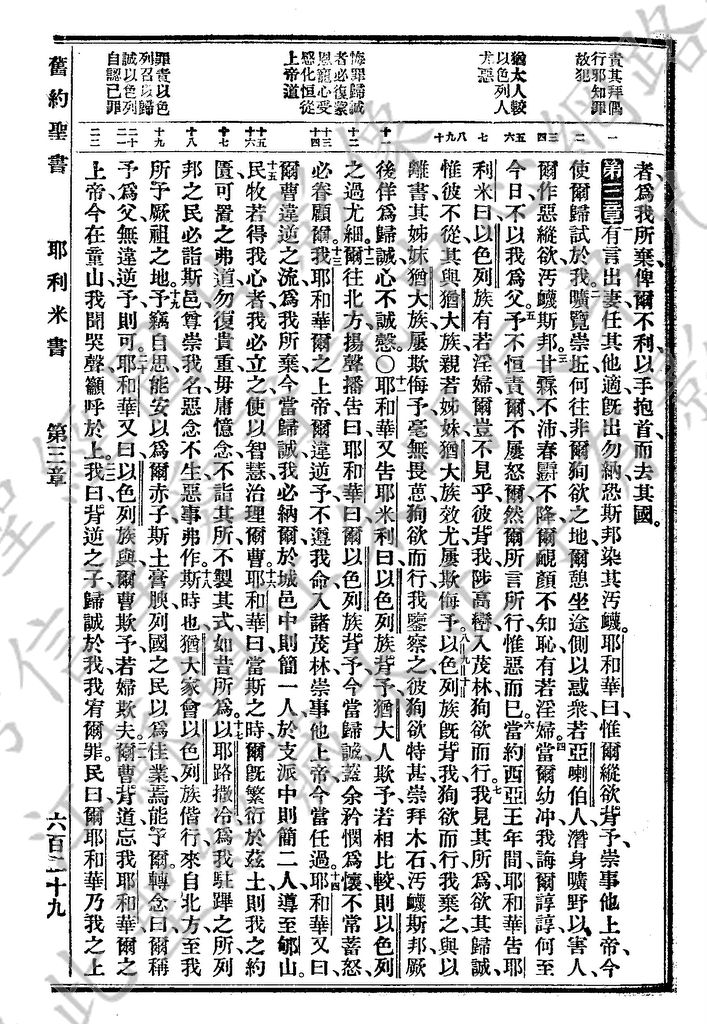 責其拜偶
行邪知罪
故犯
猶太人較
以色列人
尤惡
悔罪歸誠
者必復蒙
恩寵心受
感化恒從
上帝道
罪責以色
列召以歸
誠以色列
自認己罪
者爲我所棄俾爾不利以手抱首而去其國。
第三章 一有言出妻任其他適旣出勿納恐斯邦染其汚衊耶和華曰惟爾縱欲背予崇事他上帝今
使爾歸試於我二曠覽崇邱何往非爾狥欲之地爾憩坐途側以惑衆若亞喇伯人潛身曠野以害人
爾作惡縱欲汚衊斯邦三甘霖不沛春霢不降爾覥顏不知恥有若淫婦四當爾幼冲我誨爾諄諄何至
今日不以我爲父五予不恒責爾不屢怒爾然爾所言所行惟惡而已六當約西亞王年間耶和華告耶
利米曰以色列族有若淫婦爾豈不見乎彼背我陟高巒入茂林狥欲而行七我見其所爲欲其歸誠
惟彼不從其與猶大族親若姊妹猶大族效尤屢欺侮予八以色列族旣背我狥欲而行我棄之與以
離書其姊妹猶大族屢欺侮予毫無畏葸九狥欲而行我鑒察之彼狥欲特甚崇拜木石汚衊斯邦十厥
後佯爲歸誠心不誠慤〇十一耶和華又告耶米利曰以色列族背予猶大人欺予若相比較則以色列
之過尤細十二爾往北方揚聲播告曰耶和華曰爾以色列族背予今當歸誠蓋余矜憫爲懷不常蓄怒
必眷顧爾十三我耶和華爾之上帝爾違逆予不遵我命入諸茂林崇事他上帝今當任過十四耶和華又曰
爾曹違逆之流爲我所棄今當歸誠我必納爾於城邑中則簡一人於支派中則簡二人導至郇山
十五民牧若得我心者我必立之使以智慧治理爾曹十六耶和華曰當斯之時爾旣繁衍於茲土則我之約
匱可置之弗道勿復貴重毋庸憶念不詣其所不製其式如昔所爲十七以耶路撒冷爲我駐蹕之所列
邦之民必詣斯邑尊崇我名惡念不生惡事弗作十八斯時也猶大家會以色列族偕行來自北方至我
所予厥祖之地十九予竊自思能安以爲爾赤子斯土膏腴列國之民以爲佳業焉能予爾轉念曰爾稱
予爲父無違逆予則可二十耶和華又曰以色列族與爾曹欺予若婦欺夫二一爾曹背道忘我耶和華爾之
上帝今在童山我聞哭聲籲呼於上二二我曰背逆之子歸誠於我我宥爾罪民曰爾耶和華乃我之上
舊約聖書 耶利米書 第三章 六百二十九